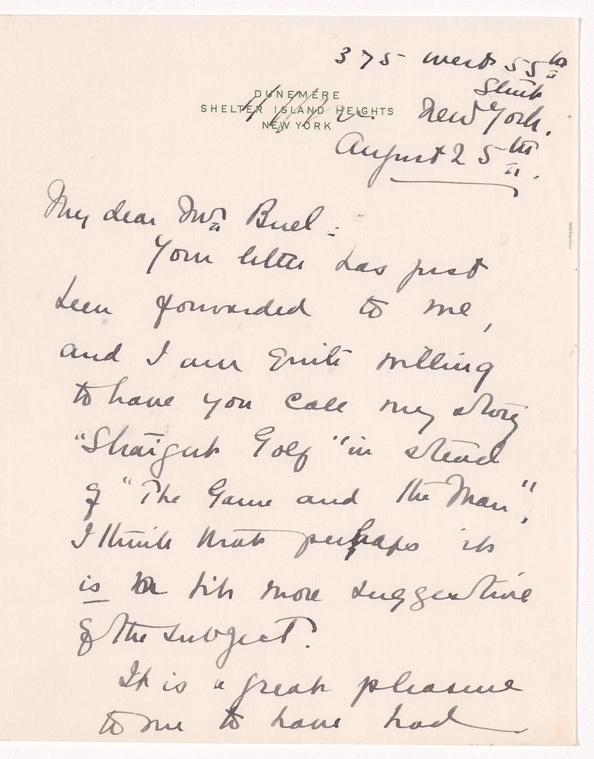 375 West 55th
Street
DUNEMERE
SHELTER ISLAND HEIGHTS
NEW YORK
New York.
August 25th.
My dear Mr. Buel:
Your letter has just
been forwarded to me,
and I am quite willing
to have you call my story
"Straight Golf" in stead
of "The Game and the Man",
I think that perhaps it
is title more suggestive
of the subject.
It is a great pleasure
to me to have had